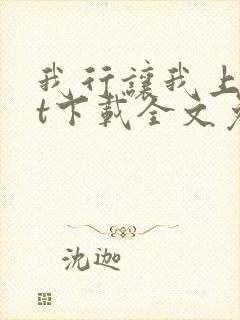 我行讓我上
t下載全文
沈迦